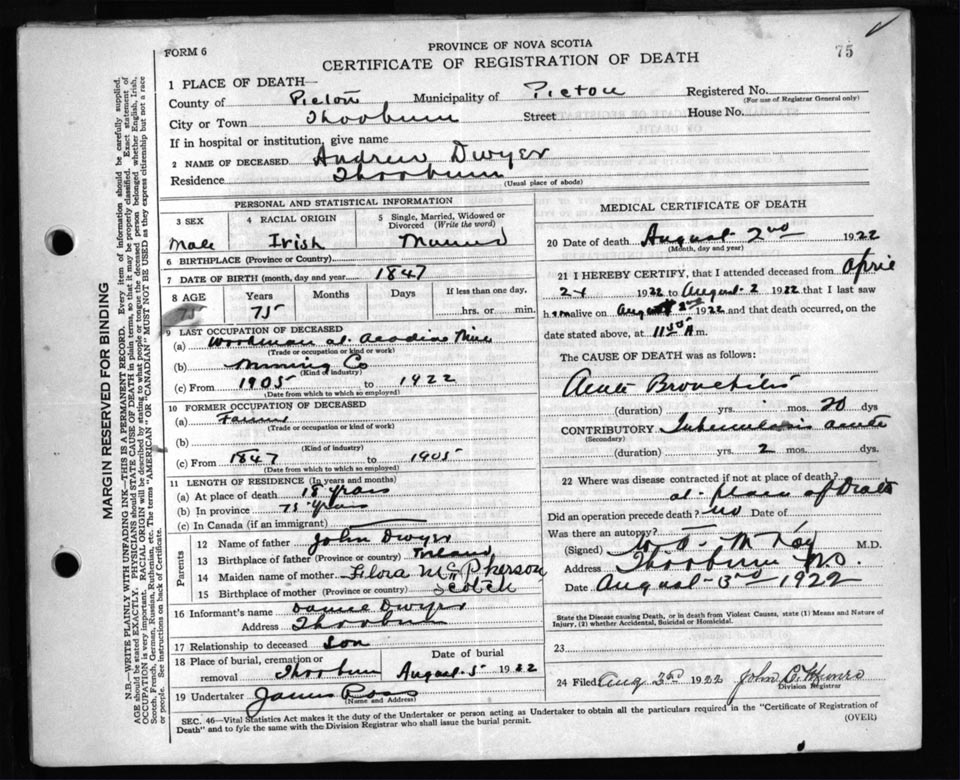 FORM 6
PROVINCE OF NOVA SCOTIA
CERTIFICATE OF REGISTRATION OF DEATH
75
1 PLACE OF DEATH—
County of Pictou Municipality of Pictou Registered No.
(For use of Registrar General only)
City or Town Thorburn Street House No.
If in hospital or institution, give name
2 NAME OF DECEASED Andrew Dwyer
Residence Thorburn
(Usual place of abode)
PERSONAL AND STATISTICAL INFORMATION
3 SEX 4 RACIAL ORIGIN 5 Single, Married, Widowed or Divorced (Write the word)
Male Irish Married
6 BIRTHPLACE (Province or Country)
7 DATE OF BIRTH (month, day and year) 1847
8 AGE Years Months Days If less than one day,
75 75 hrs. or min.
9 LAST OCCUPATION OF DECEASED
(a) Woodman at Acadia Mine
(Trade or occupation or kind or work)
(b) Mining Co
(Kind of industry)
(c) From 1905 to 1922
(Date from which to which so employed)
10 FORMER OCCUPATION OF DECEASED
(a) Farmer
(Trade or occupation or kind of work)
(b)
(Kind of industry)
(c) From 1847 to 1905
(Date from which to which so employed)
11 LENGTH OF RESIDENCE (In years and months)
(a) At place of death 18 years
(b) In province 75 years
(c) In Canada (if an immigrant)
Parents
12 Name of father John Dwyer
13 Birthplace of father (Province or country) Ireland
14 Maiden name of mother Flora McPherson
15 Birthplace of mother (Province or country) Scotch
16 Informant's name Daniel Dwyer
Address Thorburn
17 Relationship to deceased Son
18 Place of burial, cremation or removal Thorburn Date of burial August 5 1922
19 Undertaker James Ross
(Name and Address)
MEDICAL CERTIFICATE OF DEATH
20 Date of death August 2nd 1922
(Month, day and year)
21 I HEREBY CERTIFY, that I attended deceased from April
24 1922 to August 2 1922 that I last saw
him alive on August 1922 and that death occurred, on the
date stated above, at 11 A m.
The CAUSE OF DEATH was as follows:
Acute Bronchitis
(duration) yrs. mos. 20 dys
CONTRIBUTORY Tuberculosis acute
(Secondary)
(duration) yrs. 2 mos. dys.
22 Where was disease contracted if not at place of death?
at place of Death
Did an operation precede death? no Date of
Was there an autopsy?
(Signed) McKay M.D.
Address Thorburn N.S.
Date August 3rd 1922
State the Disease causing Death, or in death from Violent Causes, state (1) Means and Nature of
Injury, (2) whether Accidental, Suicidal or Homicidal.
23
24 Filed Aug 3rd 1922 John
Division Registrar
SEC. 46—Vital Statistics Act makes it the duty of the Undertaker or person acting as Undertaker to obtain all the particulars required in the "Certificate of Registration of
Death" and to fyle the same with the Division Registrar who shall issue the burial permit. (OVER)
MARGIN RESERVED FOR BINDING
N.B.—WRITE PLAINLY WITH UNFADING INK—THIS IS A PERMANENT RECORD. Every item of information should be carefully supplied.
AGE should be stated EXACTLY. PHYSICIANS should STATE CAUSE OF DEATH in plain terms, so that it may be properly classified. Exact statement of
OCCUPATION is very important. RACIAL ORIGIN will be described by stating to what people or tongue the deceased person belonged whether English, Irish,
Scotch, French, German, Russian, Ruthenian, etc. The terms "AMERICAN" OR "CANADIAN" MUST NOT BE USED as they express citizenship but not a race
or people. See instructions on back of Certificate.